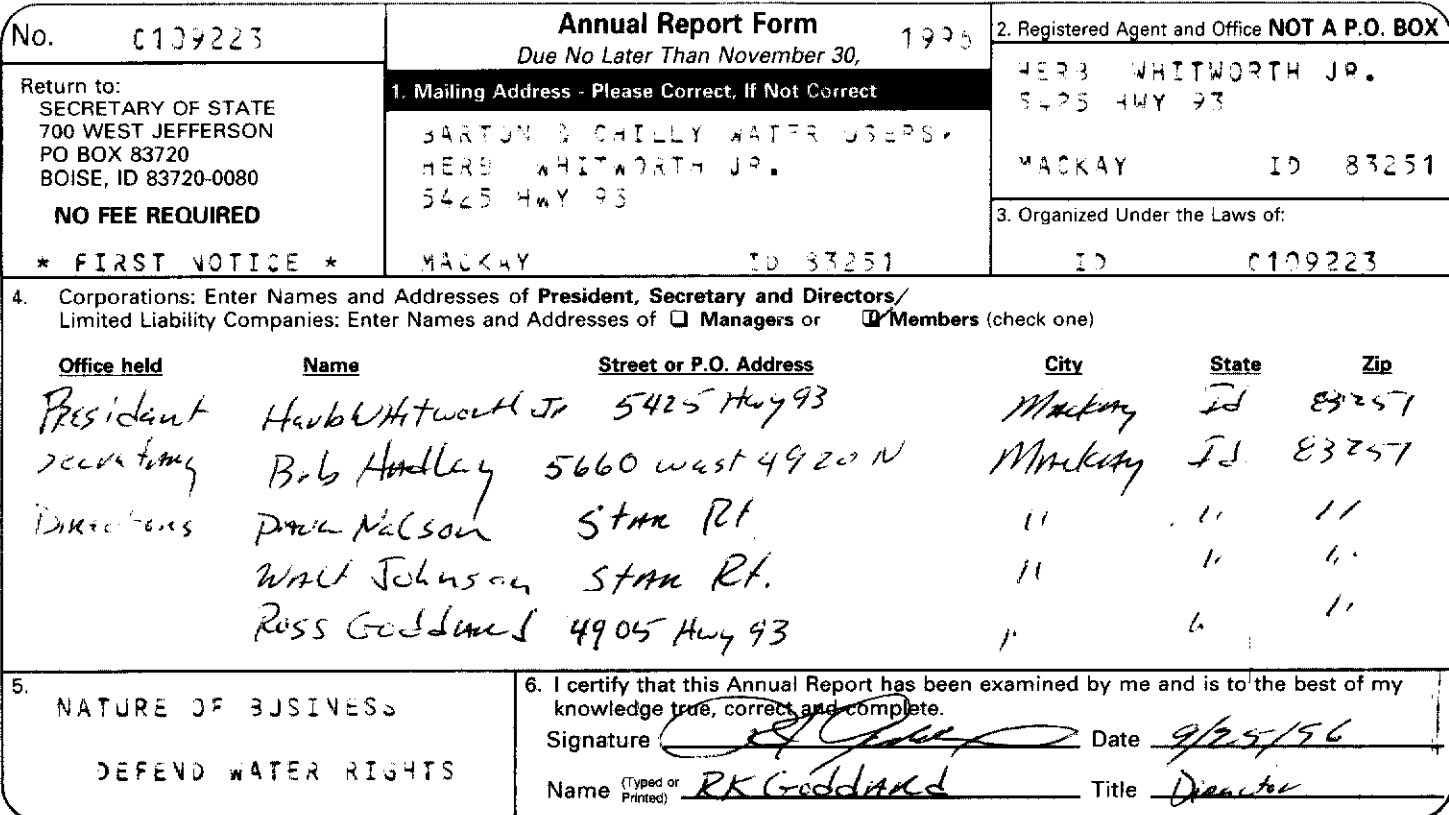 No. C109223
Annual Report Form 1996
Due No Later Than November 30,
2. Registered Agent and Office NOT A P.O. BOX
Return to:
SECRETARY OF STATE
700 WEST JEFFERSON
PO BOX 83720
BOISE, ID 83720-0080
NO FEE REQUIRED
* FIRST NOTICE *
1. Mailing Address - Please Correct, If Not Correct
BARTON & CHILLY WATER USERS,
HERB WHITWORTH JR.
5425 HWY 93
MACKAY ID 83251
HERB WHITWORTH JR.
5425 HWY 93
MACKAY ID 83251
3. Organized Under the Laws of:
ID C109223
4. Corporations: Enter Names and Addresses of President, Secretary and Directors/
Limited Liability Companies: Enter Names and Addresses of Managers or Members (check one)
Office held Name Street or P.O. Address City State Zip
President Harb Whitworth Jr 5425 Hwy 93 Mackay Id 83251
Secratary Bob Hadley 5660 west 4920 N Mackay Id 83251
Directors Dave Nelson Star Rt " " "
Walt Johnson Star Rt. " " "
Ross Goddard 4905 Hwy 93 " " "
5. NATURE OF BUSINESS
DEFEND WATER RIGHTS
6. I certify that this Annual Report has been examined by me and is to the best of my
knowledge true, correct and complete.
Signature Date 9/25/96
Name (Typed or Printed) RK Goddard Title Director